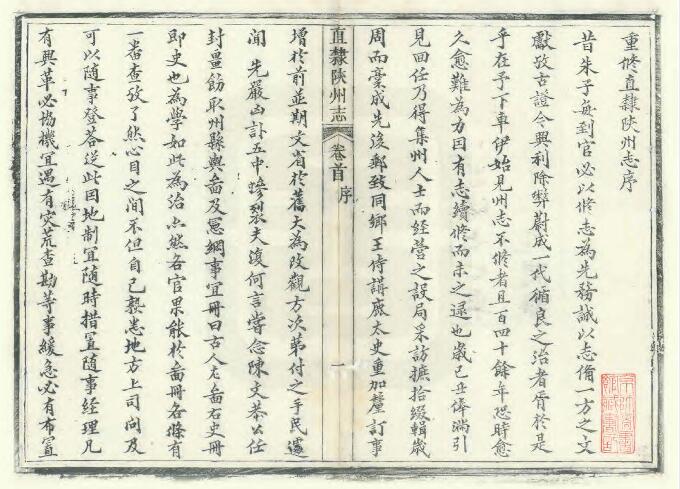 重修直隸陝州志序
昔朱子每到官必以修志為先務誠以志備一方之文
獻攷古證今興利除弊蔚成一代循良之治者胥於是
乎在予下車伊始見州志不修者且百四十餘年恐時愈
久愈難為力因有志續修而未之逮也歲己丑俸滿引
見回任乃得集州人士而經營之設局采訪摭拾綴輯歲
周而稾成先後郵致同鄉王侍講庶太史重加釐訂事
直隸陝州志
卷首
序
一
增於前並期文省於舊大為改觀方次第付之手民遽
聞 先嚴凶訃五中慘裂夫復何言嘗念陳文恭公任
封疆飭取州縣輿啚及冤綱事宜冊曰古人左啚右史冊
即史也為學如此為治亦然各官果能於啚冊各條有
一番查攷了然心目之間不但自己熟悉地方上司問及
可以隨事登荅從此因地制宜隨時措置隨事經理凡
有興革必協機宜遇有灾荒查勘等事緩急必有布置